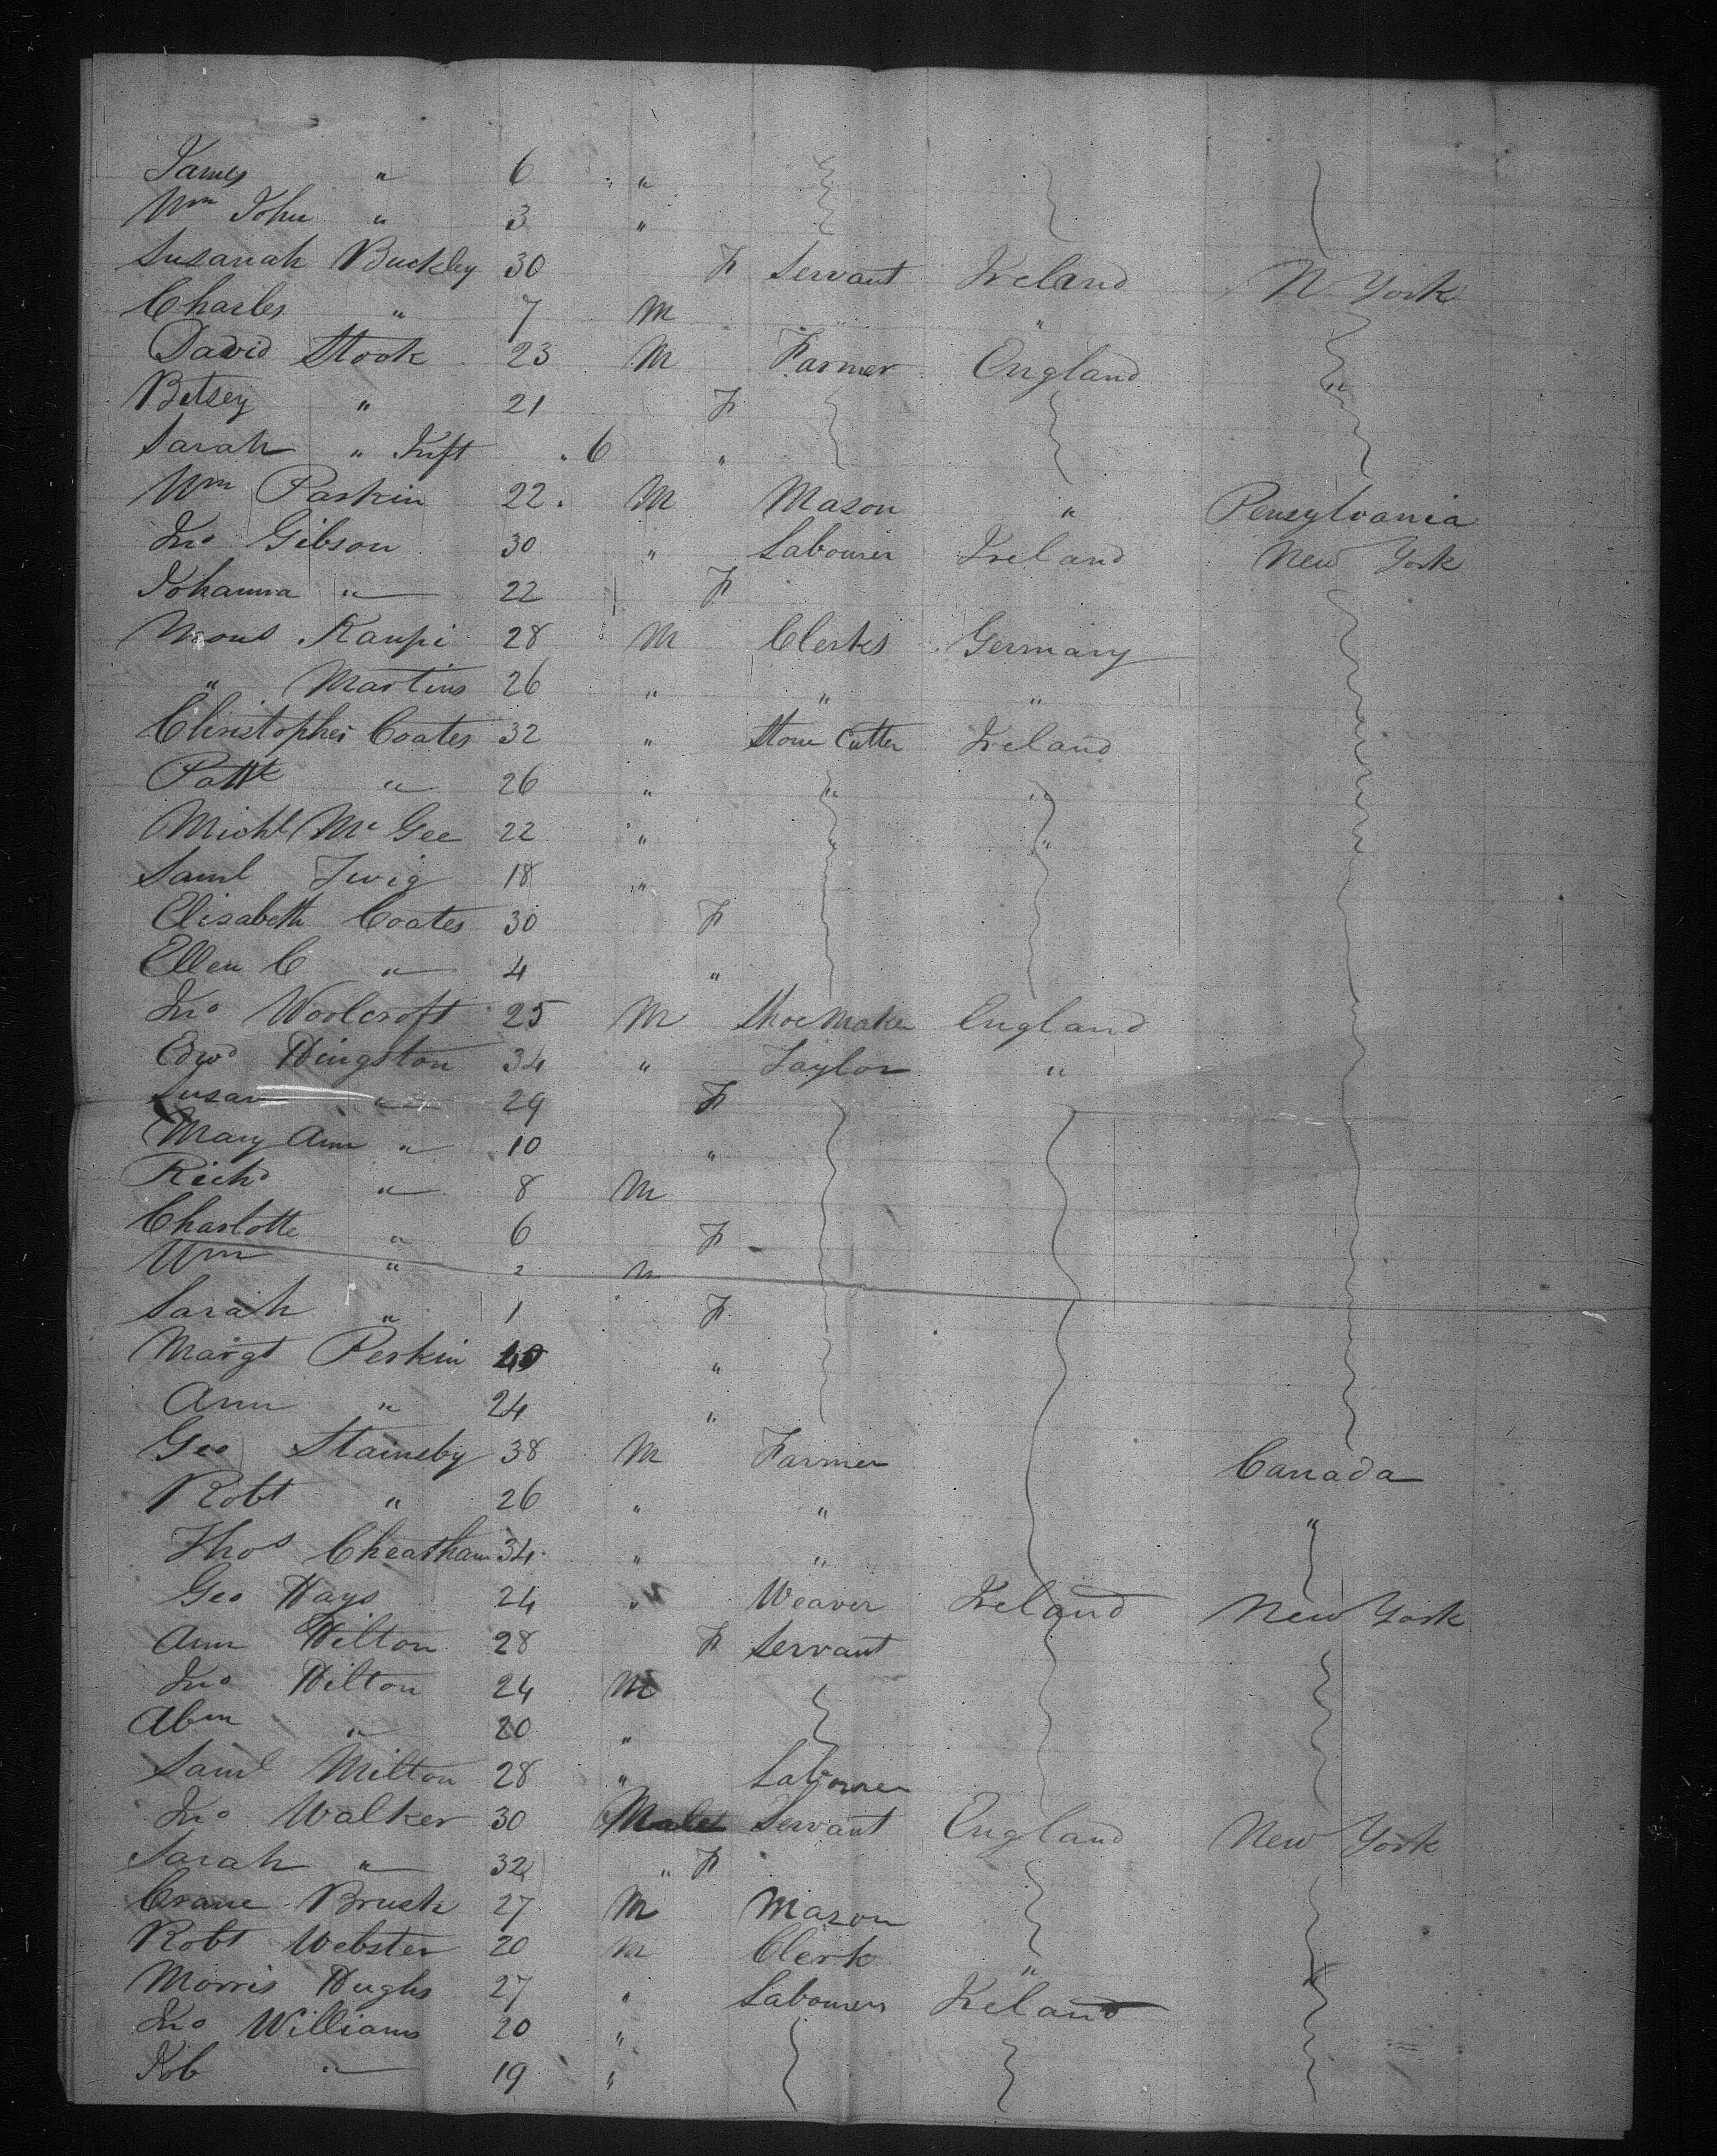 James " 6 "
Wm John " 3 "
Susanah Buckley 30 F Servant Ireland N York
Charles " 7 M " "
David Stook 23 M Farmer England
Betsey " 21 F "
Sarah " Inft 6 "
Wm Parkin 22 M Mason " Pensylvania
Jno Gibson 30 " Labourer Ireland New York
Johanna " 22 F
Mons Kaupi 28 M Clerks Germany
" Martins 26 " " "
Christopher Coates 32 " Stone Cutter Ireland
Pattk " 26 " " "
Michl Mc Gee 22 " " "
Saml Twig 18 "
Elisabeth Coates 30 F
Ellen C " 4 "
Jno Woolcroft 25 M Shoe Maker England
Edwd Hingston 34 " Taylor "
Susan " 29 F
Mary Ann " 10 "
Richd " 8 M
Charlotte " 6 F
Wm " 2 M
Sarah " 1 F
Margt Perkin 40 "
Ann " 24 "
Geo Stainsby 38 M Farmer Canada
Robt " 26 " " "
Thos Cheatham 34 " "
Geo Hays 24 " Weaver Ireland New York
Ann Hilton 28 F Servant
Jno Hilton 24 M
Abm " 20 "
Saml Milton 28 " Labourer
Jno Walker 30 Male Servant England New York
Sarah " 32 " F
Crane Brusk 27 M Mason
Robt Webster 20 M Clerk "
Morris Hughs 27 " Labourers Ireland
Jno Williams 20 "
Job " 19 "